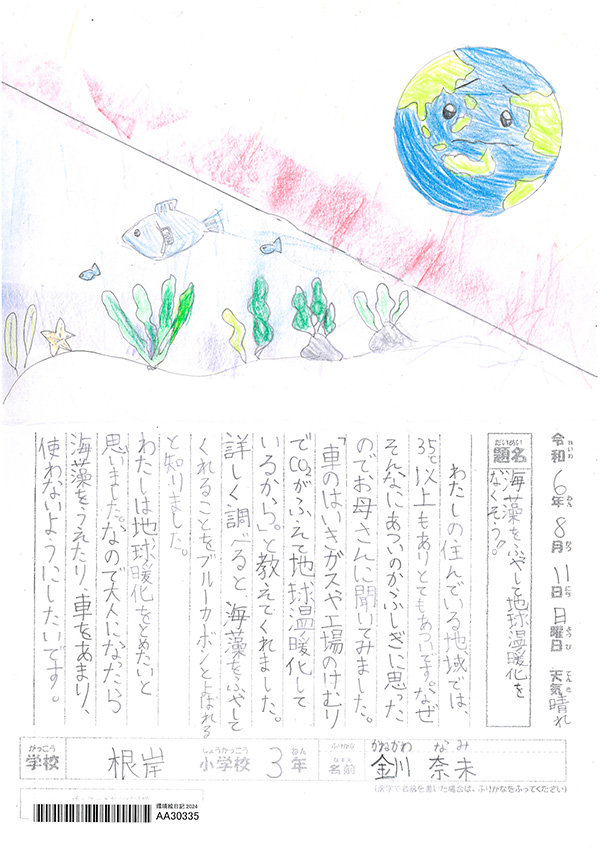 令和6年8月11日日曜日 天気晴れ
れいわ ねん がつ にち ようび てんき
だいめい
題名 海藻をふやして地球温暖化を
なくそう?
わたしの住んでいる地域では、
35℃以上もありとてもあついです。なぜ
そんなにあついのかふしぎに思った
のでお母さんに聞いてみました。
「車のはいきガスや工場のけむり
でCO2がふえて地球温暖化して
いるから。」と教えてくれました。
詳しく調べると、海藻をふやして
くれることをブルーカボンとよばれる
と知りました。
わたしは地球暖化をとめたいと
思いました。なので大人になったら
海藻をうえたり、車をあまり、
使わないようにしたいです。
がっこう しょうがっこう ねん ふりがな かねかわ なみ
学校 根岸 小学校 3年 なまえ 名前 金川 奈未
(漢字で名前を書いた場合は、ふりがなをふってください)
環境絵日記2024
AA30335